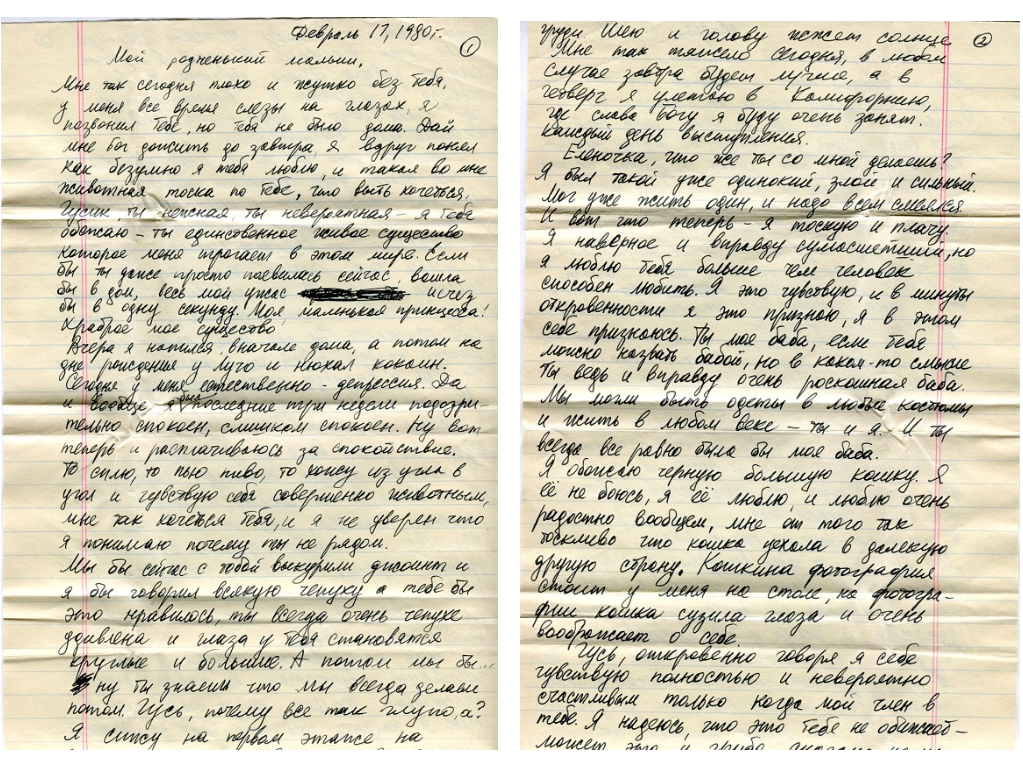 Февраль 17, 1980г.
1
Мой родненький малыш,
Мне так сегодня плохо и жутко без тебя,
у меня все время слезы на глазах, я
позвонил тебе, но тебя не было дома. Дай
мне бог дожить до завтра, я вдруг понял
как безумно я тебя люблю, и такая во мне
животная тоска по тебе, что выть хочеться.
Гусик, ты нежная, ты невероятная – я тебя
обожаю – ты единственное живое существо
которое меня трогает в этом мире. Если
бы ты даже просто появилась сейчас, вошла
бы в дом, весь мой ужас исчез
бы в одну секунду. Моя маленькая принцесса!
Храброе мое существо!
Вчера я напился, вначале дома, а потом на
дне рождения у Луго и нюхал кокаин.
Сегодня у меня естественно – депрессия. Да
и вообще я был последние три недели подозри-
тельно спокоен, слишком спокоен. Ну вот
теперь и расплачиваюсь за спокойствие.
То сплю, то пью пиво, то хожу из угла в
угол и чувствую себя совершенно животным,
мне так хочеться тебя, и я не уверен что
я понимаю почему ты не рядом.
Мы бы сейчас с тобой выкурили джоинт и
я бы говорил всякую чепуху а тебе бы
это нравилось, ты всегда очень чепухе
удивлена и глаза у тебя становятся
круглые и большие. А потом мы бы...
ну ты знаешь что мы всегда делаем
потом. Гусь, почему все так глупо, а?
Я сижу на первом этаже на
2
груди. Шею и голову жжет солнце
Мне так тяжело сегодня, в любом
случае завтра будет лучше, а в
четверг я улетаю в Калифорнию,
где слава богу я буду очень занят.
Каждый день выступления.
Еленочка, что же ты со мной делаешь?
Я был такой уже одинокий, злой и сильный.
Мог уже жить один, и надо всем смеялся.
И вот что теперь – я тоскую и плачу.
Я наверное и вправду сумасшедший, но
я люблю тебя больше чем человек
способен любить. Я это чувствую, и в минуты
откровенности я это признаю, я в этом
себе признаюсь. Ты моя баба, если тебя
можно назвать бабой, но в каком-то смысле
ты ведь и вправду очень роскошная баба.
Мы могли быть одеты в любые костюмы
и жить в любом веке – ты и я. И ты
всегда все равно была бы моя баба.
Я обожаю черную большую кошку. Я
её не боюсь, я её люблю, и люблю очень
радостно вообщем, мне от того так
тоскливо что кошка уехала в далекую
другую страну. Кошкина фотография
стоит у меня на столе, на фотогра-
фии кошка сузила глаза и очень
воображает о себе.
Гусь, откровенно говоря я себя
чувствую полностью и невероятно
счастливым только когда мой член в
тебе. Я надеюсь, что это тебе не обижает –
может это и грубо